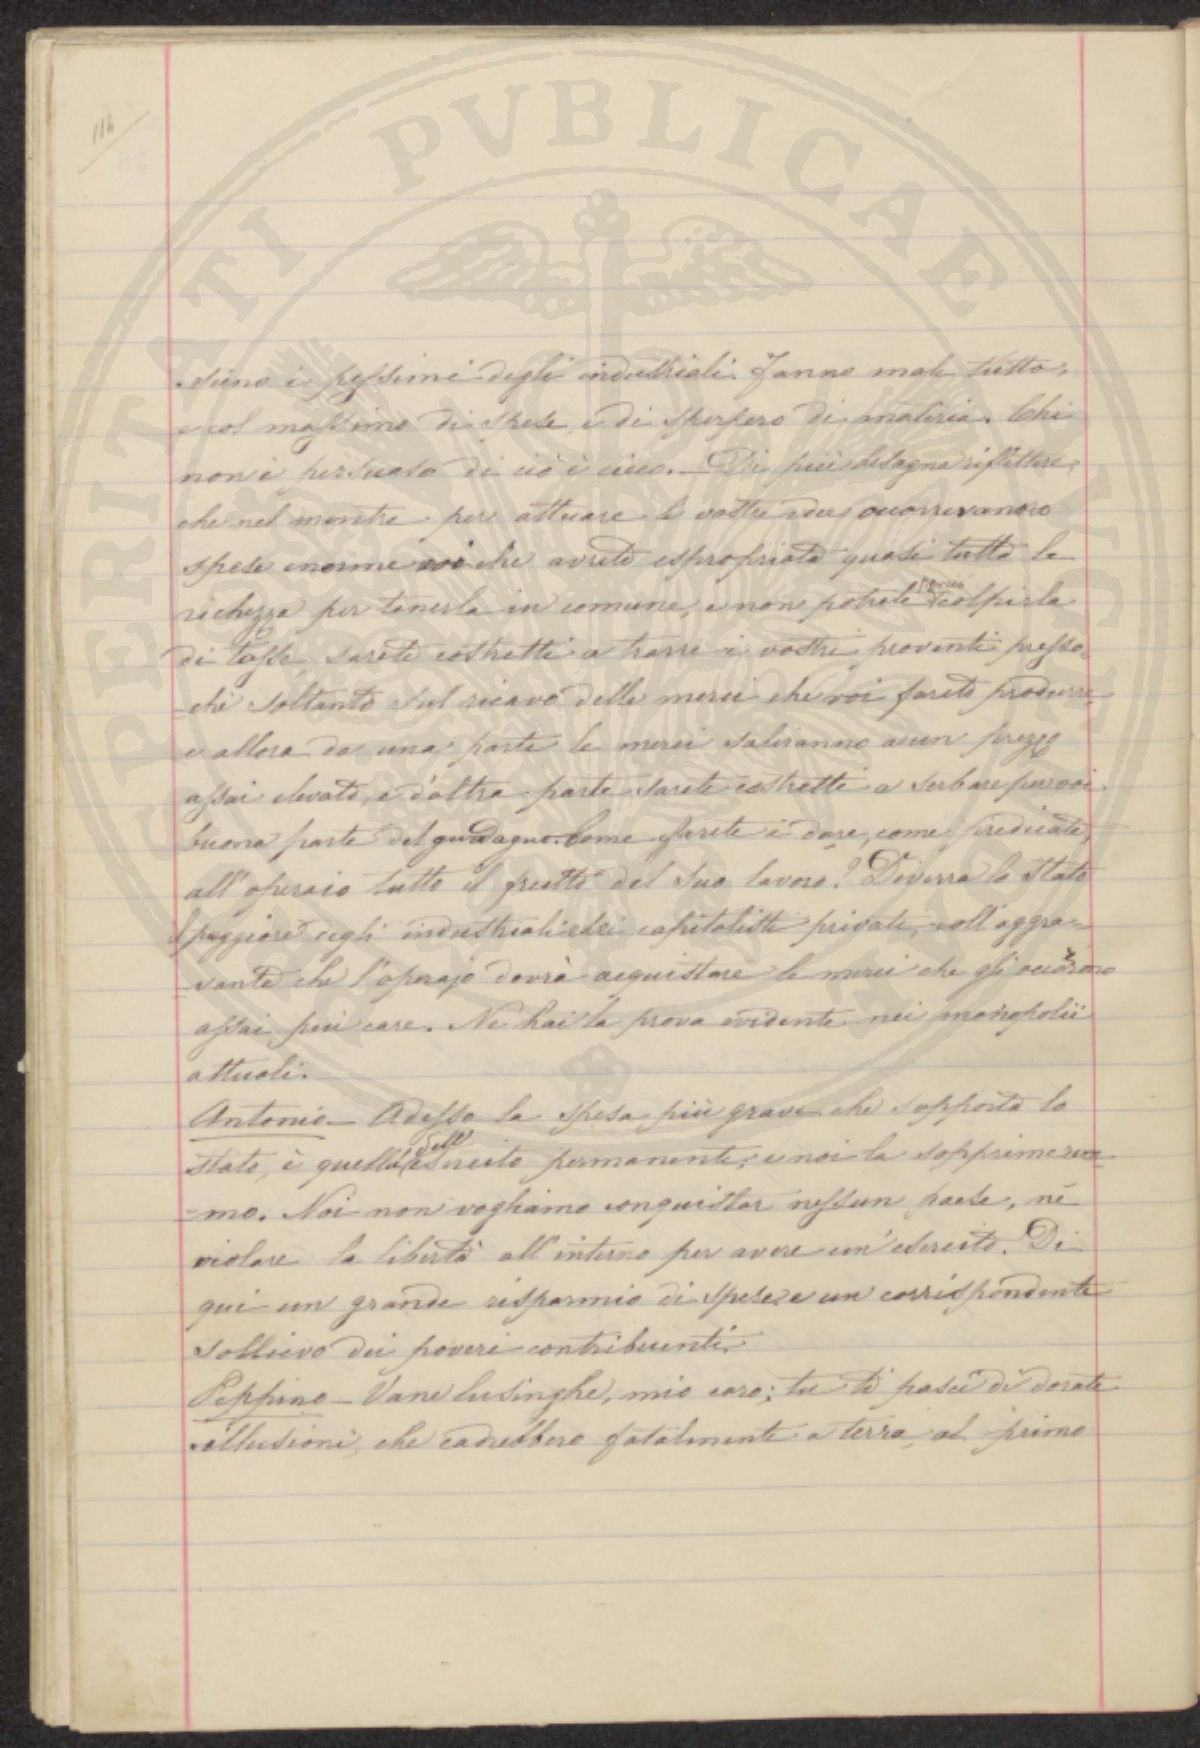 116
sieno i pessimi degli industriali. Fanno male tutto,
e col massimo di spese e di sperpero di materia. Chi
non è persuaso di ciò è cieco. — Di più bisogna riflettere,
che nel mentre per attuare le vostre idee occorrevanno
spese enorme voi che avrete espropriato quasi tutta la
richezza per tenerla in comune, e non potrete perciò colpirla
di tasse, sarete costretti a trarre i vostri proventi presso-
-chè soltanto sul ricavo delle merci che voi farete produrre
e allora da una parte le merci saliranno a un prezzo
assai elevato, e d'altra parte sarete costretti a serbare per voi
buona parte del guadagno. Come farete a dare, come predicate,
all'operaio tutto il frutto del suo lavoro? Diverrà lo Stato
peggiore degli industriali e dei capitalisti privati, coll'aggra-
-vante che l'operajo dovrà acquistare le merci che gli occorrono
assai più care. Ne hai la prova evidente nei monopolii
attuali.
Antonio — Adesso la spesa più grave che sopporta lo
stato, è quella dell' esercito permanente; e noi la sopprimere-
-mo. Noi non vogliamo conquistar nessun paese, nè
violare la libertà all'interno per avere un'esercito. Di
qui un grande risparmio di spese e un corrispondente
sollievo dei poveri contribuenti.
Peppino — Vane lusinghe, mio caro; tu ti pasci di dorate
illusioni, che cadrebbero fatalmente a terra al primo
VERITATI PVBLICAE